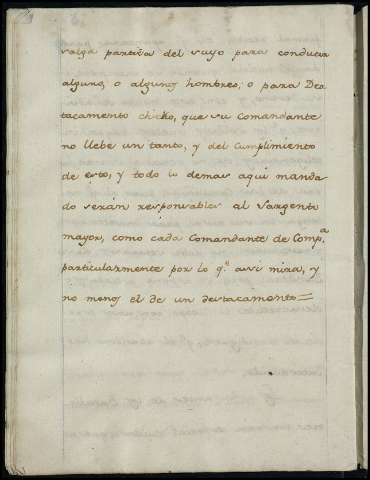 salga partida del suyo para conducir
alguno, o algunos hombres, o para Des
tacamento chico, que su Comandante
no llebe un tanto, y del cumplimiento
de esto, y todo lo demas aqui manda
do seràn responsables al Sargento
mayor, como cada Comandante de Comp.a
particularmente por lo q.e assi mira, y
no menos el de un destacamento=